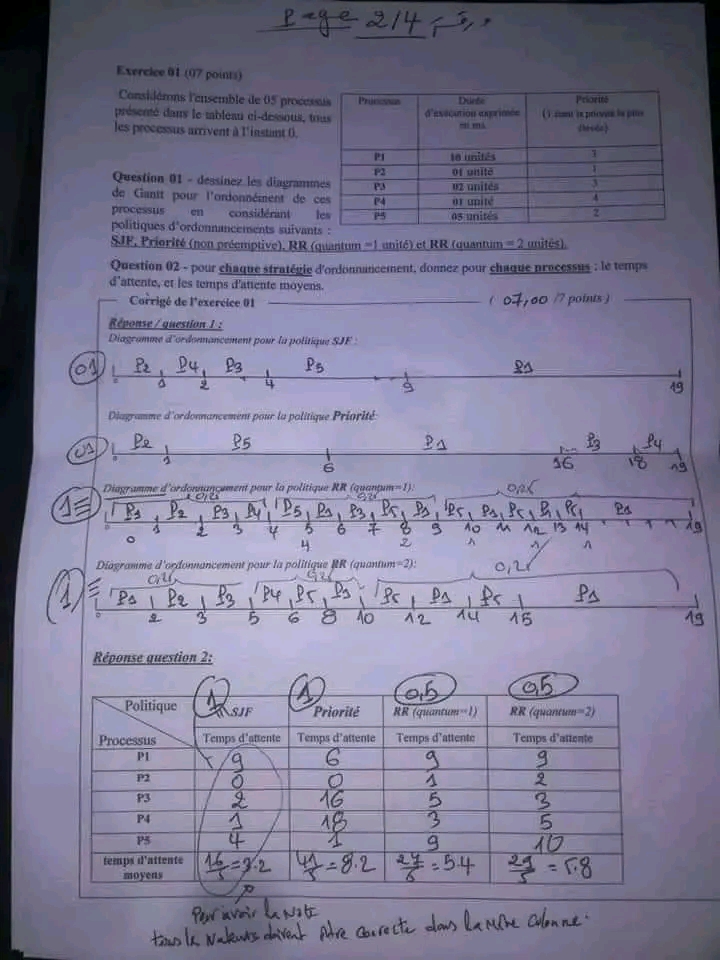 Page 2/4
Exercice 01 (07 points)
Considérons l'ensemble de 05 processus
présenté dans le tableau ci-dessous, tous
les processus arrivent à l'instant 0.
Processus Durée d'exécution exprimée en ms Priorité
P1 10 unités 3
P2 01 unité 1
P3 02 unités 3
P4 01 unité 4
P5 05 unités 2
Question 01 - dessinez les diagrammes
de Gantt pour l'ordonnément de ces
processus en considérant les
politiques d'ordonnancements suivants :
SJF, Priorité (non préemptive), RR (quantum =1 unité) et RR (quantum = 2 unités).
Question 02 - pour chaque stratégie d'ordonnancement, donnez pour chaque processus : le temps
d'attente, et les temps d'attente moyens.
Corrigé de l'exercice 01 ( 07,00 /7 points )
Réponse / question 1 :
Diagramme d'ordonnancement pour la politique SJF :
01 P2 P4 P3 P5 P1
0 1 2 4 9 19
Diagramme d'ordonnancement pour la politique Priorité:
01 P2 P5 P1 P3 P4
0 1 6 16 18 19
Diagramme d'ordonnancement pour la politique RR (quantum=1):
0,25 0,25 0,25
1 P1 P2 P3 P4 P5 P1 P3 P5 P1 P5 P1 P5 P1 P5 P1
0 1 2 3 4 5 6 7 8 9 10 11 12 13 14 19
4 2 1 1
Diagramme d'ordonnancement pour la politique RR (quantum=2):
0,25 0,25 0,25
1 P1 P2 P3 P4 P5 P1 P5 P1 P5 P1
0 2 3 5 6 8 10 12 14 15 19
Réponse question 2:
1 1 0,5 0,5
Politique SJF Priorité RR (quantum=1) RR (quantum=2)
Processus Temps d'attente Temps d'attente Temps d'attente Temps d'attente
P1 9 6 9 9
P2 0 0 1 2
P3 2 16 5 3
P4 1 18 3 5
P5 4 1 9 10
temps d'attente moyens 16/5 = 3.2 41/5 = 8.2 27/5 = 5.4 29/5 = 5.8
Pour avoir la Note
tous la Valeurs doivent être correcte dans la Même Colonne.